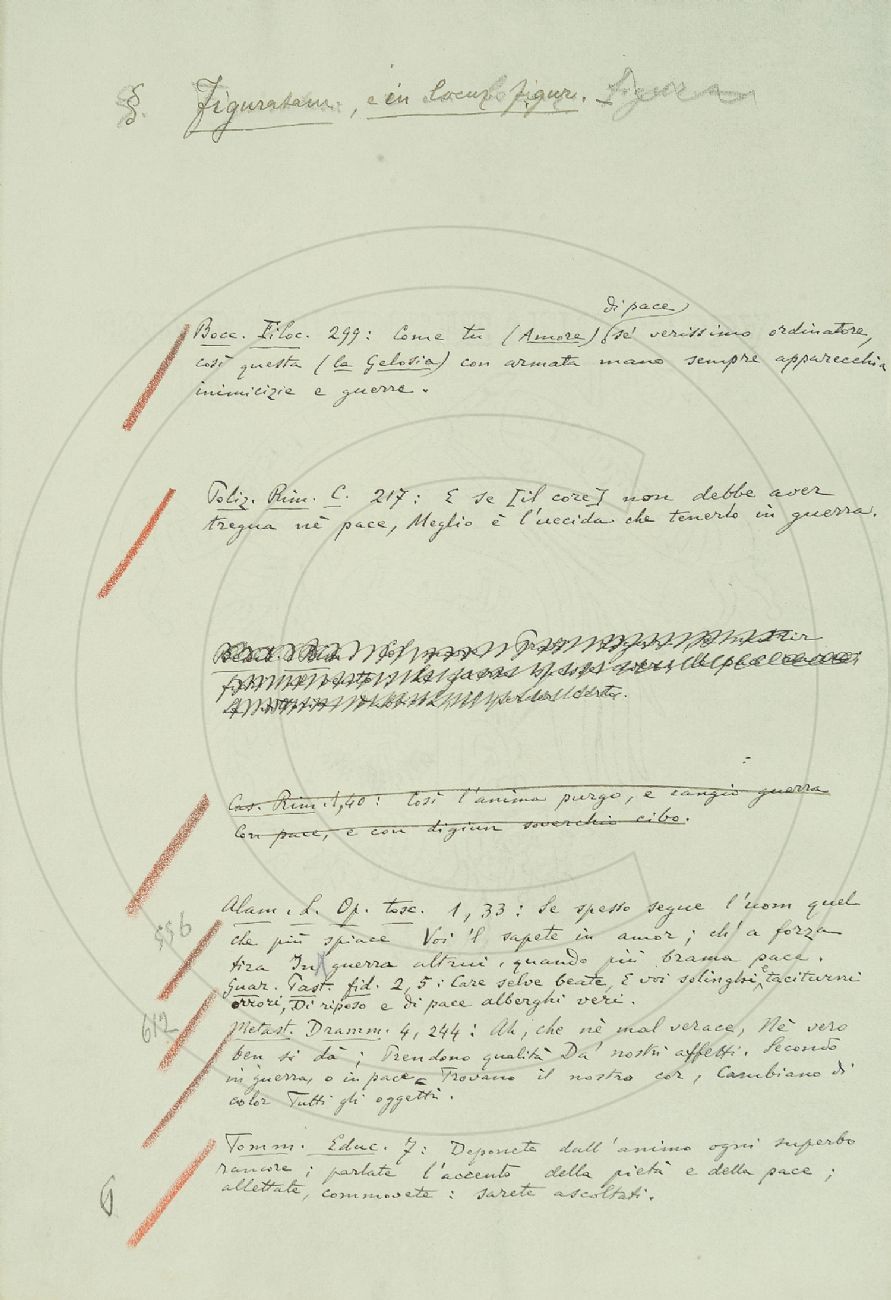 §. Figuratam., e in locuz. figur. – Figura
di pace)
Bocc. Filoc. 299: Come tu (Amore) (se' verissimo ordinatore,
così questa (la Gelosia) con armata mano sempre apparecchia
inimicizie e guerre.
Poliz. Rim. C. 217: E se [il core] non debbe aver
tregua nè pace, Meglio è l'uccida che tenerlo in guerra.
Cas. Rim. 1, 40: Così l'anima purgo, e cangio guerra
Con pace, e con digiun soverchio cibo.
Alam. L. Op. tosc. 1, 33: Se spesso segue l'uom quel
556
che più spiace Voi 'l sapete in amor; ch' a forza
tira In guerra altrui, quando più brama pace.
Guar. Past. fid. 2, 5: Care selve beate, E voi solinghi e taciturni
orrori, Di riposo e di pace alberghi veri.
612
Metast. Dramm. 4, 244: Ah, che nè mal verace, Nè vero
ben si dà; Prendono qualità Da' nostri affetti. Secondo
in guerra, o in pace Trovano il nostro cor, Cambiano di
color Tutti gli oggetti.
Tomm. Educ. 7: Deponete dall'animo ogni superbo
rancore; parlate l'accento della pietà e della pace;
allettate, commovete: sarete ascoltati.